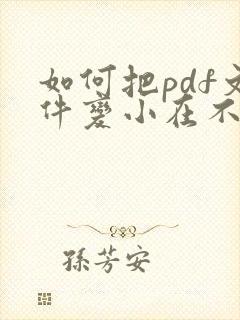 如何把pdf文
件變小在不
孫芳安